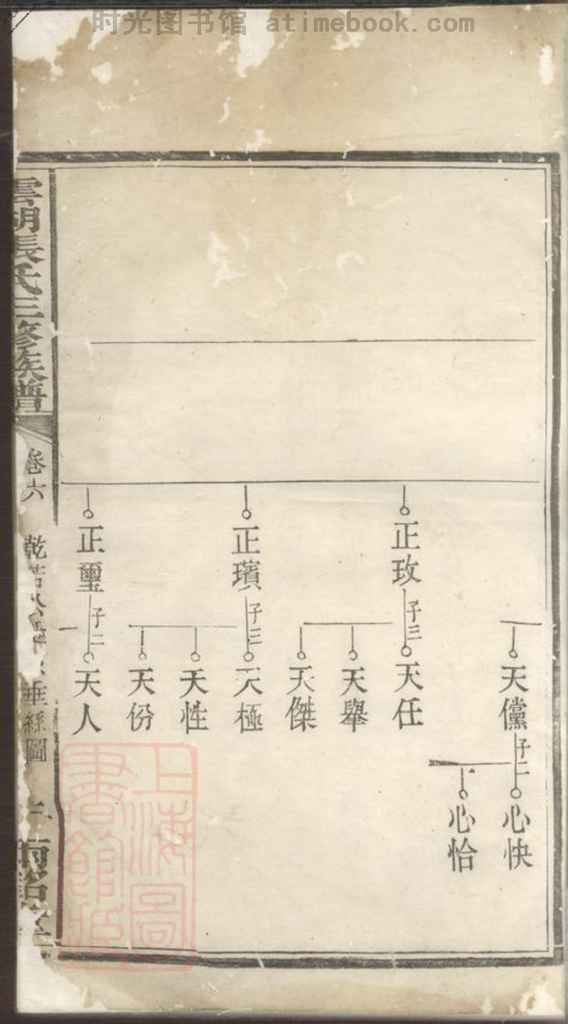 时光图书馆 atimebook.com
天儻 子二
心快
心恰
正玫 子三
天任
天舉
天傑
正璸 子三
天極
天性
天份
正璽 子二
天人
雲湖張氏三修族譜
卷六
垂絲圖
上海圖書館藏